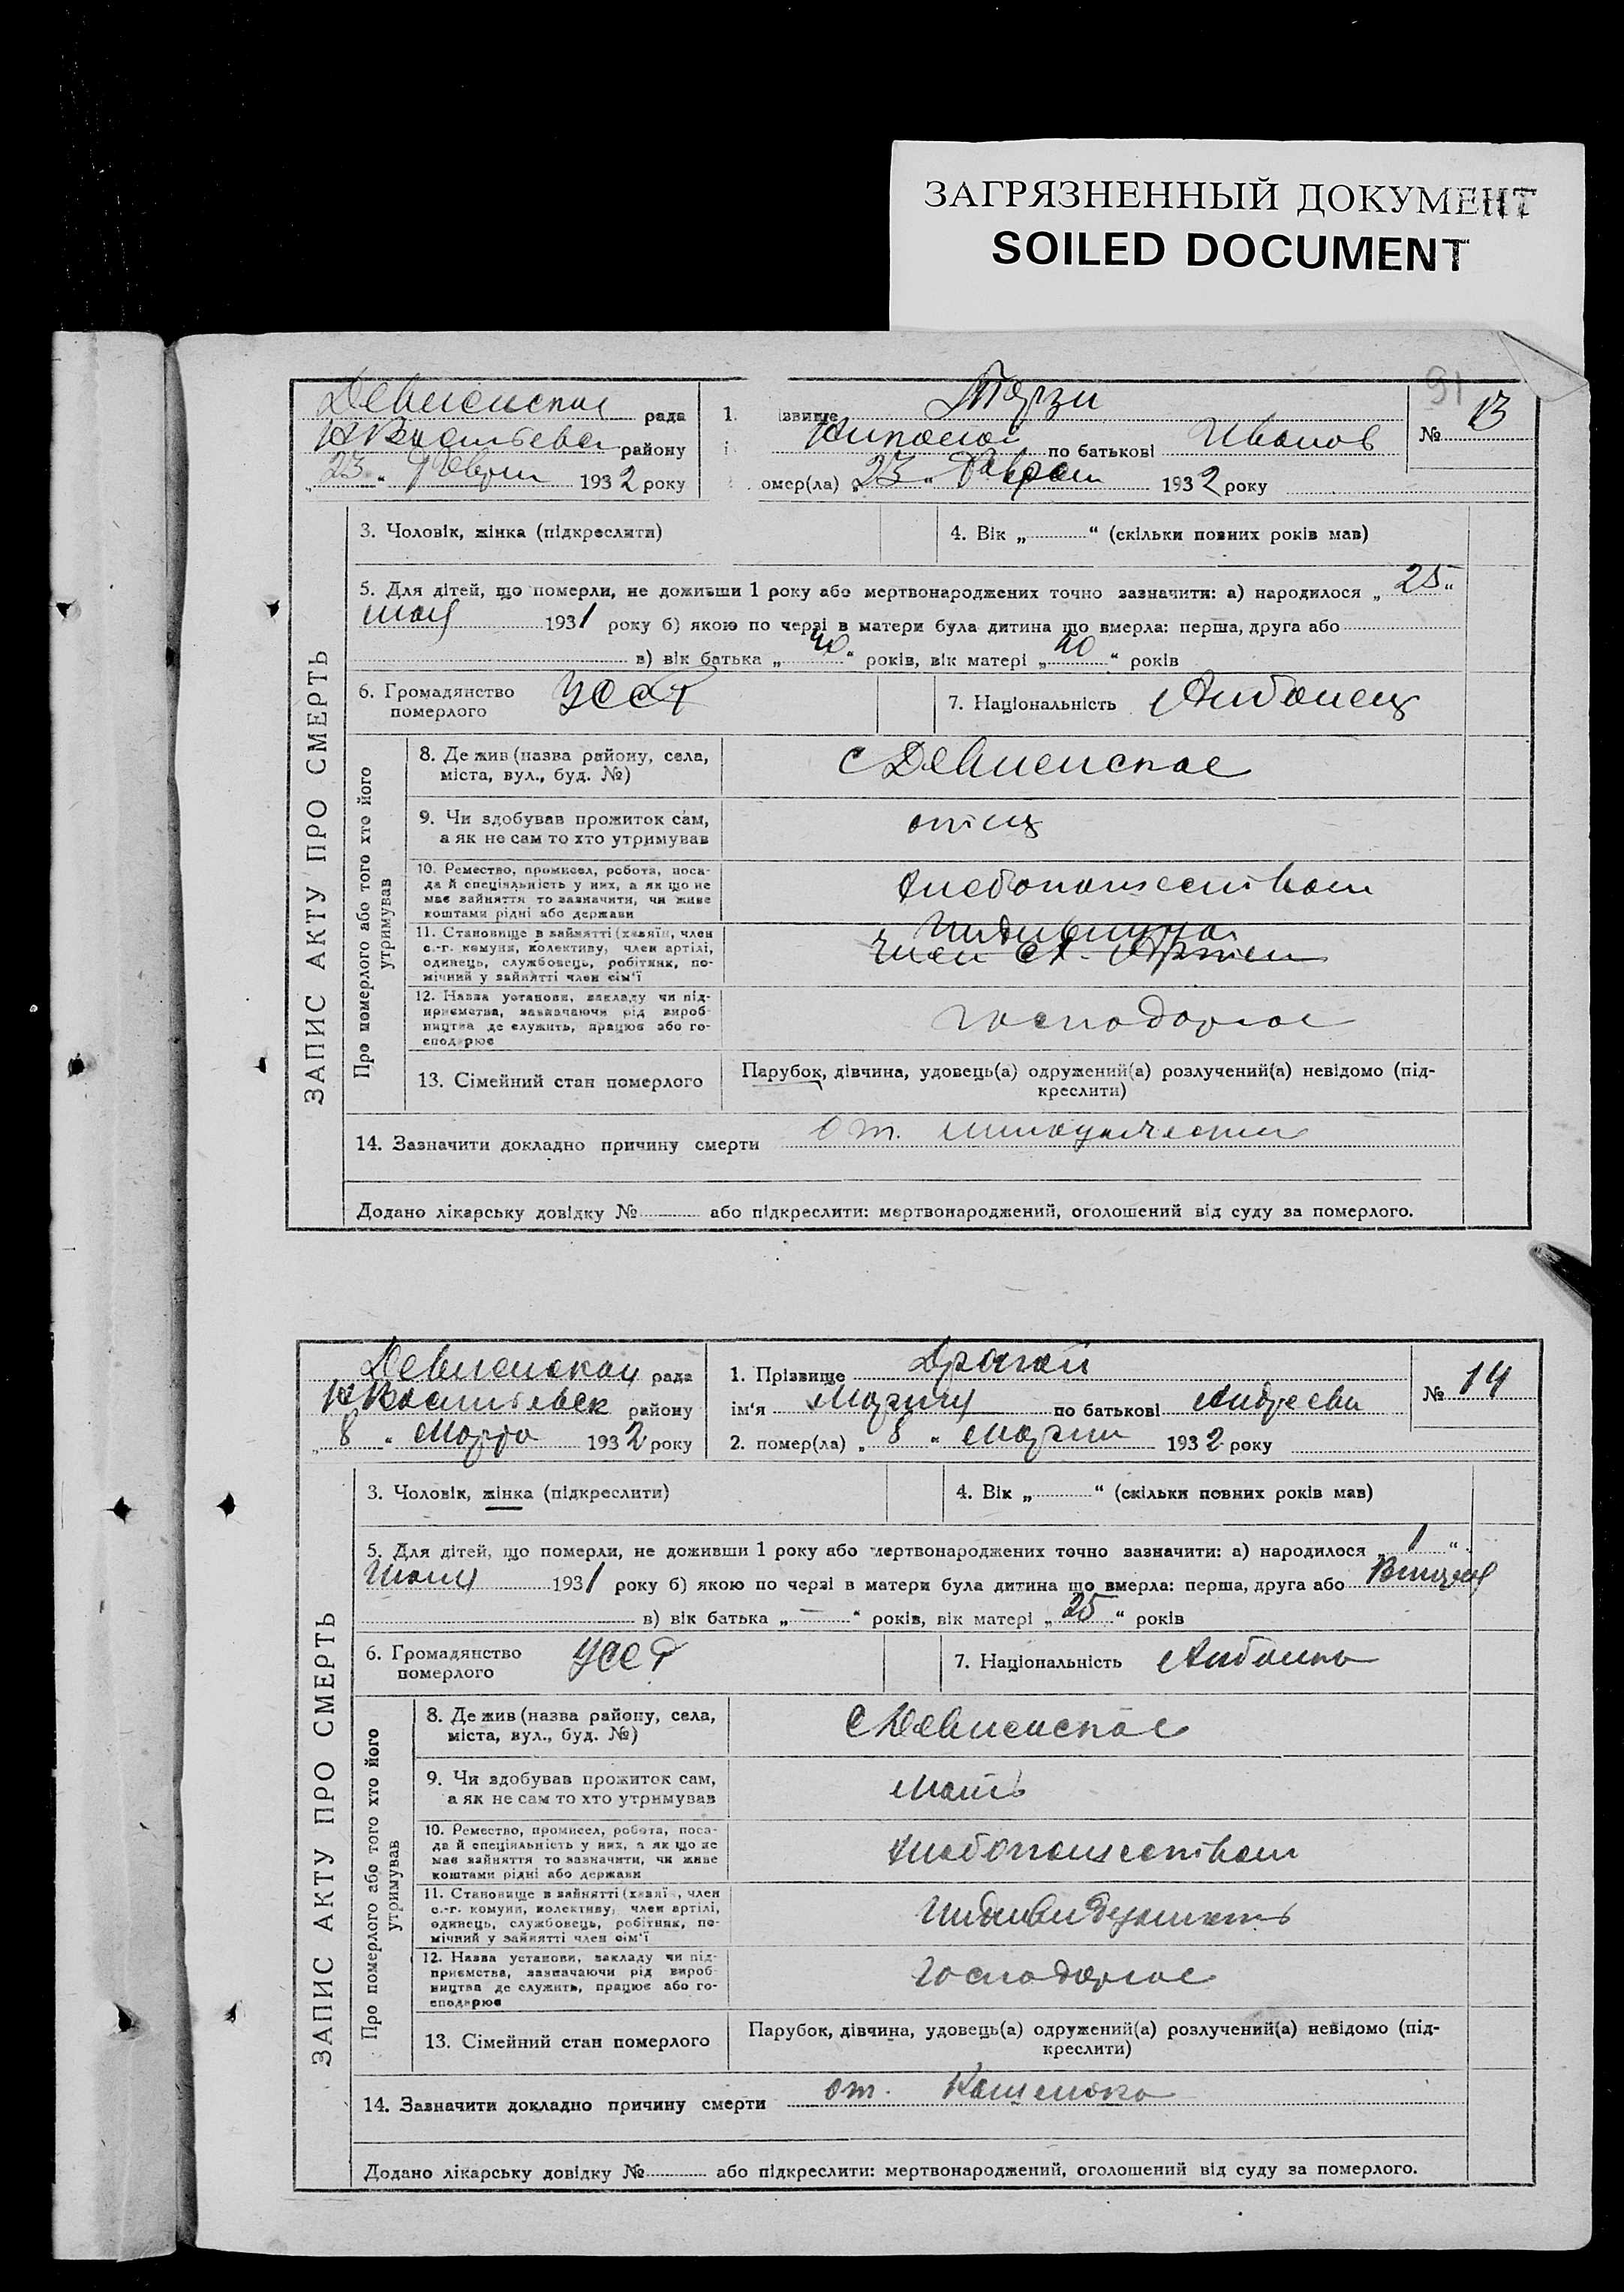 ЗАГРЯЗНЕННЫЙ ДОКУМЕНТ
SOILED DOCUMENT
91
ЗАПИС АКТУ ПРО СМЕРТЬ
Девненская рада
района
23 Феврал 1932 року
1. звище Тарзи
Николай по батькові Иванов
омер(ла) „23" Феврал 1932 року
№ 13
3. Чоловік, жінка (підкреслити)
4. Вік „ " (скільки повних років мав)
5. Для дітей, що померли, не доживши 1 року або мертвонароджених точно зазначити: а) народилося „25"
мая 1931 року б) якою по черзі в матери була дитина що вмерла: перша, друга або
в) вік батька „40" років, вік матері „40" років
6. Громадянство
померлого
УССР
7. Національність Албанец
Про померлого або того хто його
утримував
8. Де жив (назва району, села,
міста, вул., буд. №)
с Девненское
9. Чи здобував прожиток сам,
а як не сам то хто утримував
отец
10. Ремество, промисел, робота, поса-
да й спеціяльність у них, а як що не
має зайняття то зазначити, чи живе
коштами рідні або держави
хлебопашеством
11. Становище в зайнятті (хазяїн, член
с.-г. комуни, колективу, член артілі,
одинець, службовець, робітник, по-
мічний у зайнятті член сім'ї
член с.х. Артел
12. Назва установи, закладу чи під-
приємства, зазначаючи рід вироб-
ництва де служить, працює або го-
сподарює
13. Сімейний стан померлого
Парубок, дівчина, удовець(а) одружений(а) розлучений(а) невідомо (під-
креслити)
14. Зазначити докладно причину смерти от.
Додано лікарську довідку № або підкреслити: мертвонароджений, оголошений від суду за померлого.
ЗАПИС АКТУ ПРО СМЕРТЬ
Девненская рада
району
„8" Марта 1932 року
1. Прізвище Драгой
ім'я по батькові Андреевн
2. помер(ла) „8" Марта 1932 року
№ 14
3. Чоловік, жінка (підкреслити)
4. Вік „ " (скільки повних років мав)
5. Для дітей, що померли, не доживши 1 року або мертвонароджених точно зазначити: а) народилося „1"
1931 року б) якою по черзі в матери була дитина що вмерла: перша, друга або
в) вік батька „—" років, вік матері „25" років
6. Громадянство
померлого
УССР
7. Національність Албанка
Про померлого або того хто його
утримував
8. Де жив (назва району, села,
міста, вул., буд. №)
с Девненское
9. Чи здобував прожиток сам,
а як не сам то хто утримував
мать
10. Ремество, промисел, робота, поса-
да й спеціяльність у них, а як що не
має зайняття то зазначити, чи живе
коштами рідні або держави
хлебопашеством
11. Становище в зайнятті (хазяїн, член
с.-г. комуни, колективу, член артілі,
одинець, службовець, робітник, по-
мічний у зайнятті член сім'ї
12. Назва установи, закладу чи під-
приємства, зазначаючи рід вироб-
ництва де служить, працює або го-
сподарює
13. Сімейний стан померлого
Парубок, дівчина, удовець(а) одружений(а) розлучений(а) невідомо (під-
креслити)
14. Зазначити докладно причину смерти от.
Додано лікарську довідку № або підкреслити: мертвонароджений, оголошений від суду за померлого.